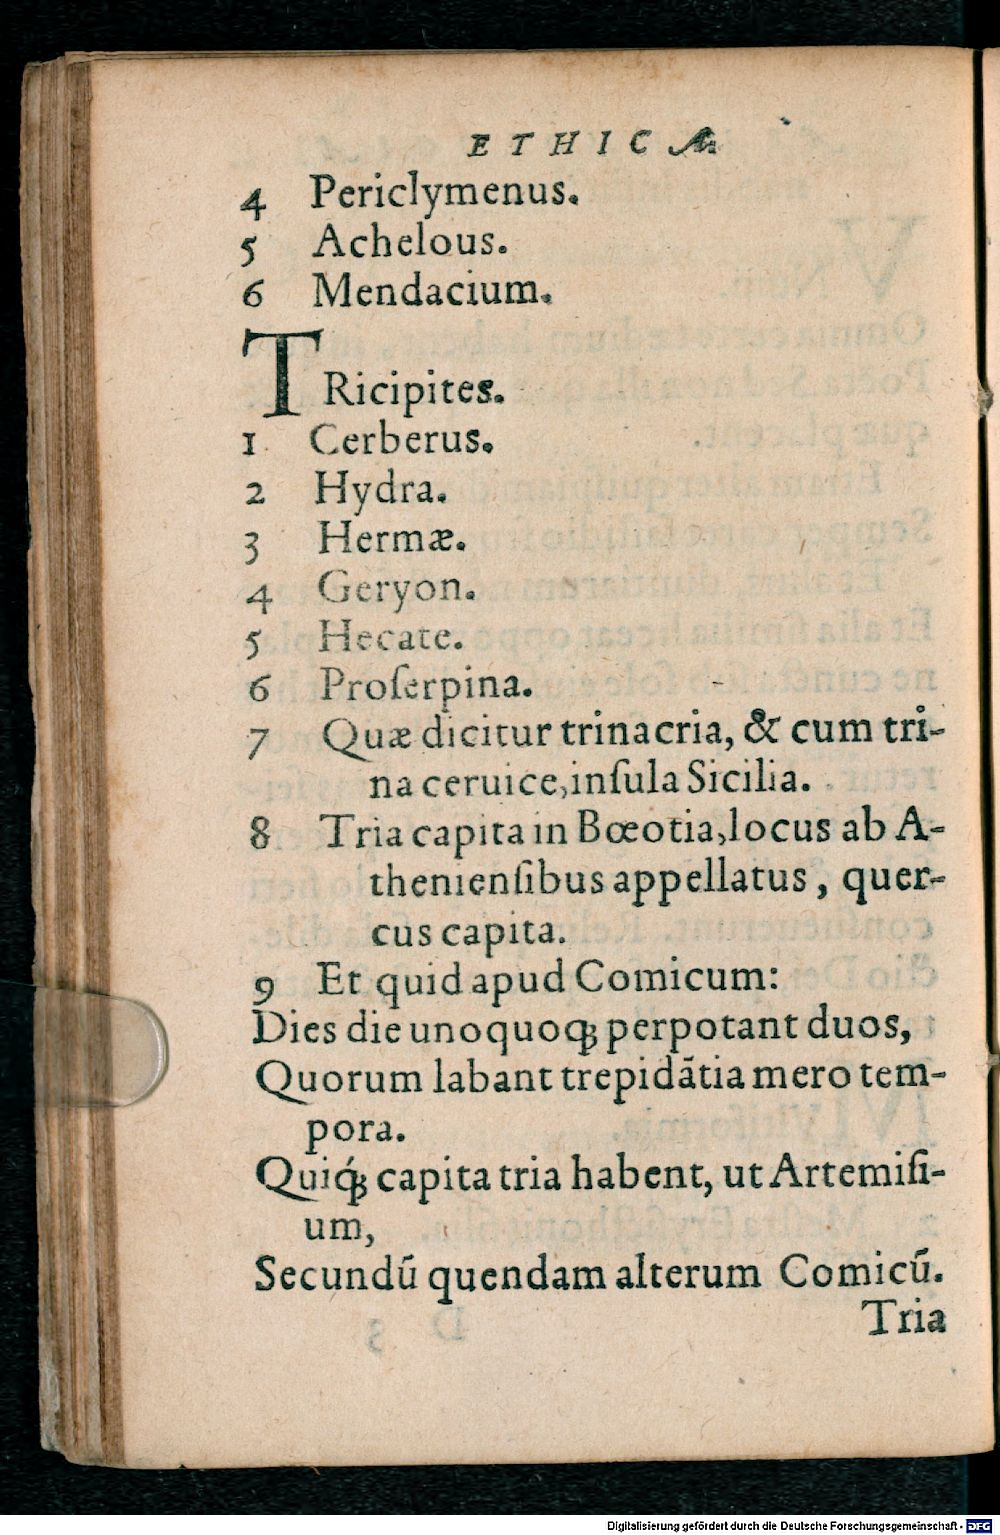 ETHICÆ
4 Periclymenus.
5 Achelous.
6 Mendacium.
TRicipites.
1 Cerberus.
2 Hydra.
3 Hermæ.
4 Geryon.
5 Hecate.
6 Proſerpina.
7 Quæ dicitur trinacria, & cum tri-
na ceruice, inſula Sicilia.
8 Tria capita in Bœotia, locus ab A-
thenienſibus appellatus, quer-
cus capita.
9 Et quid apud Comicum:
Dies die uno quoq; perpotant duos,
Quorum labant trepidãtia mero tem-
pora.
Quiq́; capita tria habent, ut Artemiſi-
um,
Secundũ quendam alterum Comicũ.
Tria
Digitalisierung gefördert durch die Deutsche Forschungsgemeinschaft - DFG